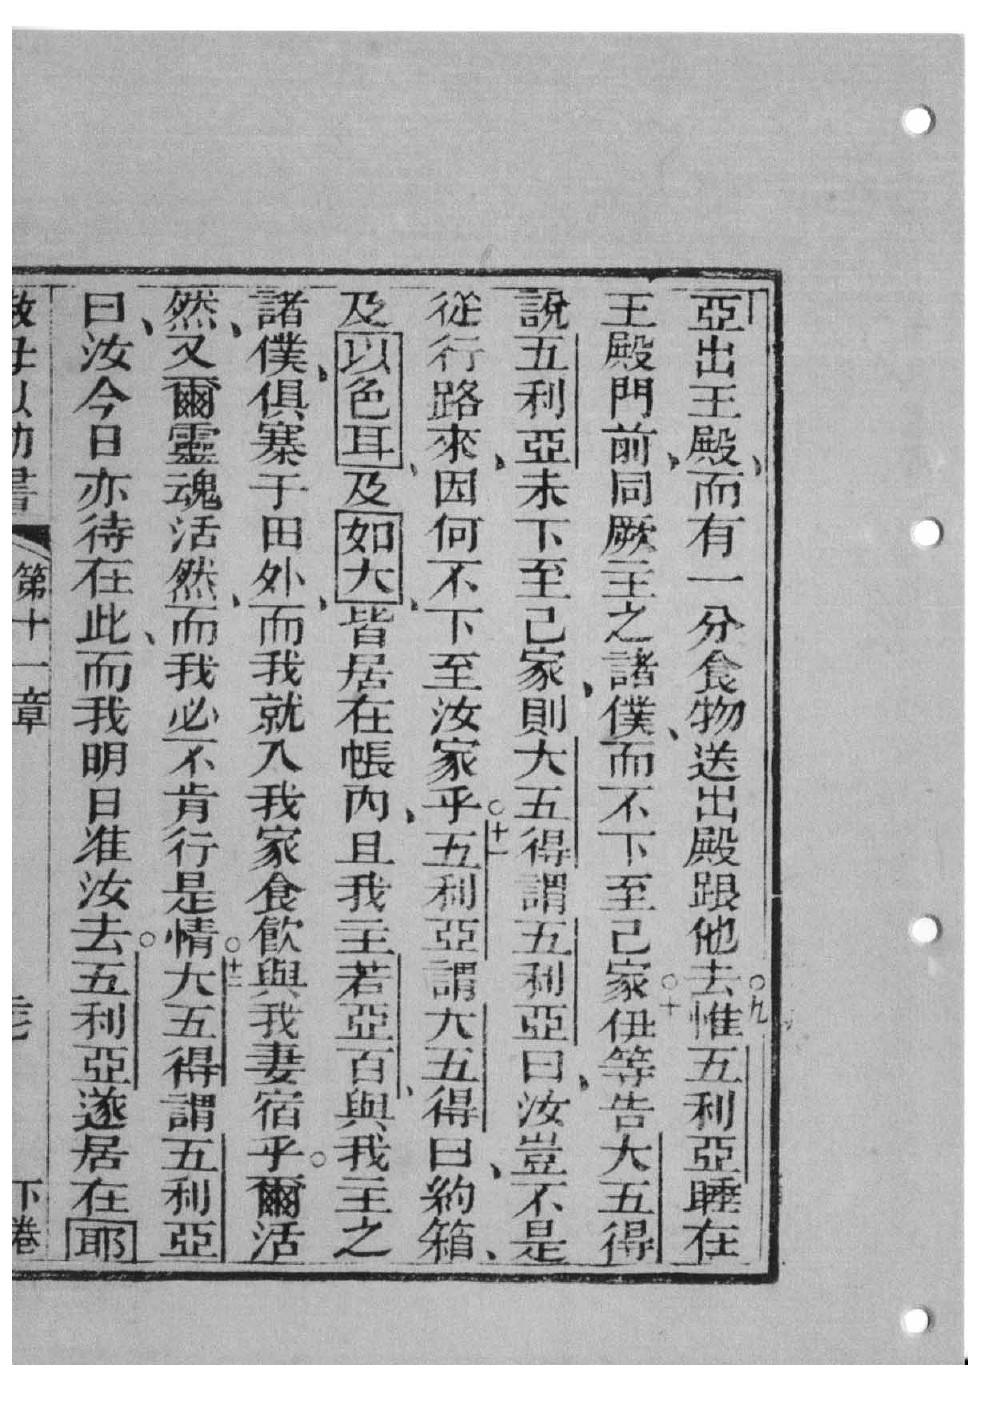 亞出王殿、而有一分食物送出殿跟他去○九惟五利亞睡在
王殿門前、同厥主之諸僕、而不下至己家○十伊等告大五得
說五利亞未下至己家、則大五得謂五利亞曰、汝豈不是
從行路來、因何不下至汝家乎○十一五利亞謂大五得曰、約箱、
及以色耳、及如大、皆居在帳內、且我主若亞百、與我主之
諸僕、俱寨于田外、而我就入我家食飮與我妻宿乎○爾活
然、又爾靈魂活然、而我必不肯行是情○十二大五得謂五利亞
曰、汝今日亦待在此、而我明日准汝去○五利亞遂居在耶
第十一章
下卷